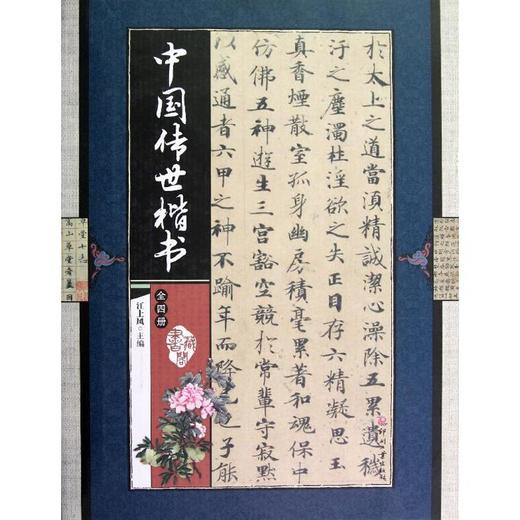 中国传世楷书
全四册
江上风 主编
於太上之道當須精誠潔心澡除五累遺穢
汙之塵濁杜淫欲之失正目存六精凝思玉
真香煙散室孤身幽房積毫累著和魂保中
仿佛五神遊生三宮豁空競於常輩守寂默
以感通者六甲之神不踰年而降
子能
草堂十志